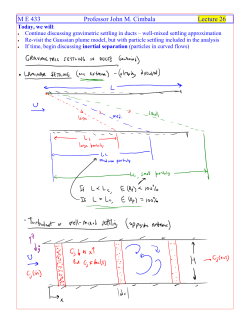 M E 433 Professor John M. Cimbala Lecture 26
Today, we will:
• Continue discussing gravimetric settling in ducts – well-mixed settling approximation
• Re-visit the Gaussian plume model, but with particle settling included in the analysis
• If time, begin discussing inertial separation (particles in curved flows)
GRAVIMETRIC SETTLING IN DUCTS
• LAMINAR SETTLING (one extreme) – (already discussed)
L
U
large
med
small
Lc
large particles
Lc
medium particles
Lc small particles
If L < Lc, E(Dp) < 100%
If L = Lc E(Dp) = 100%
• Turbulent or well-mixed settling (opposite extreme)
U
H
x
dx